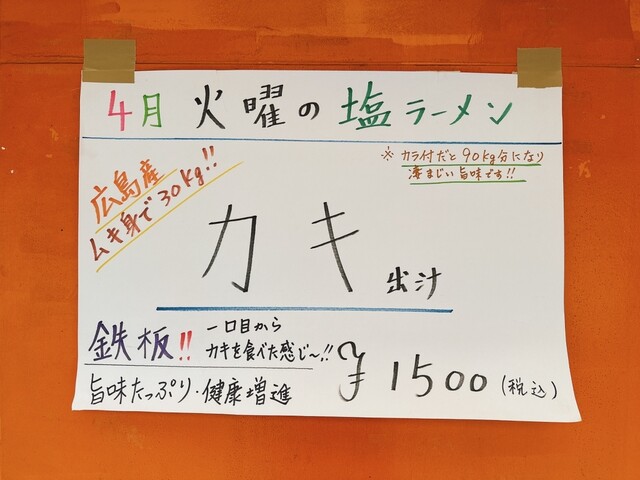 4月 火曜の塩ラーメン
広島産
ムキ身で30kg!!
※カラ付だと90kg分になり
凄まじい旨味です!!
カキ出汁
鉄板!!
一口目から
カキを食べた感じ〜!!
旨味たっぷり・健康増進
¥1500(税込)